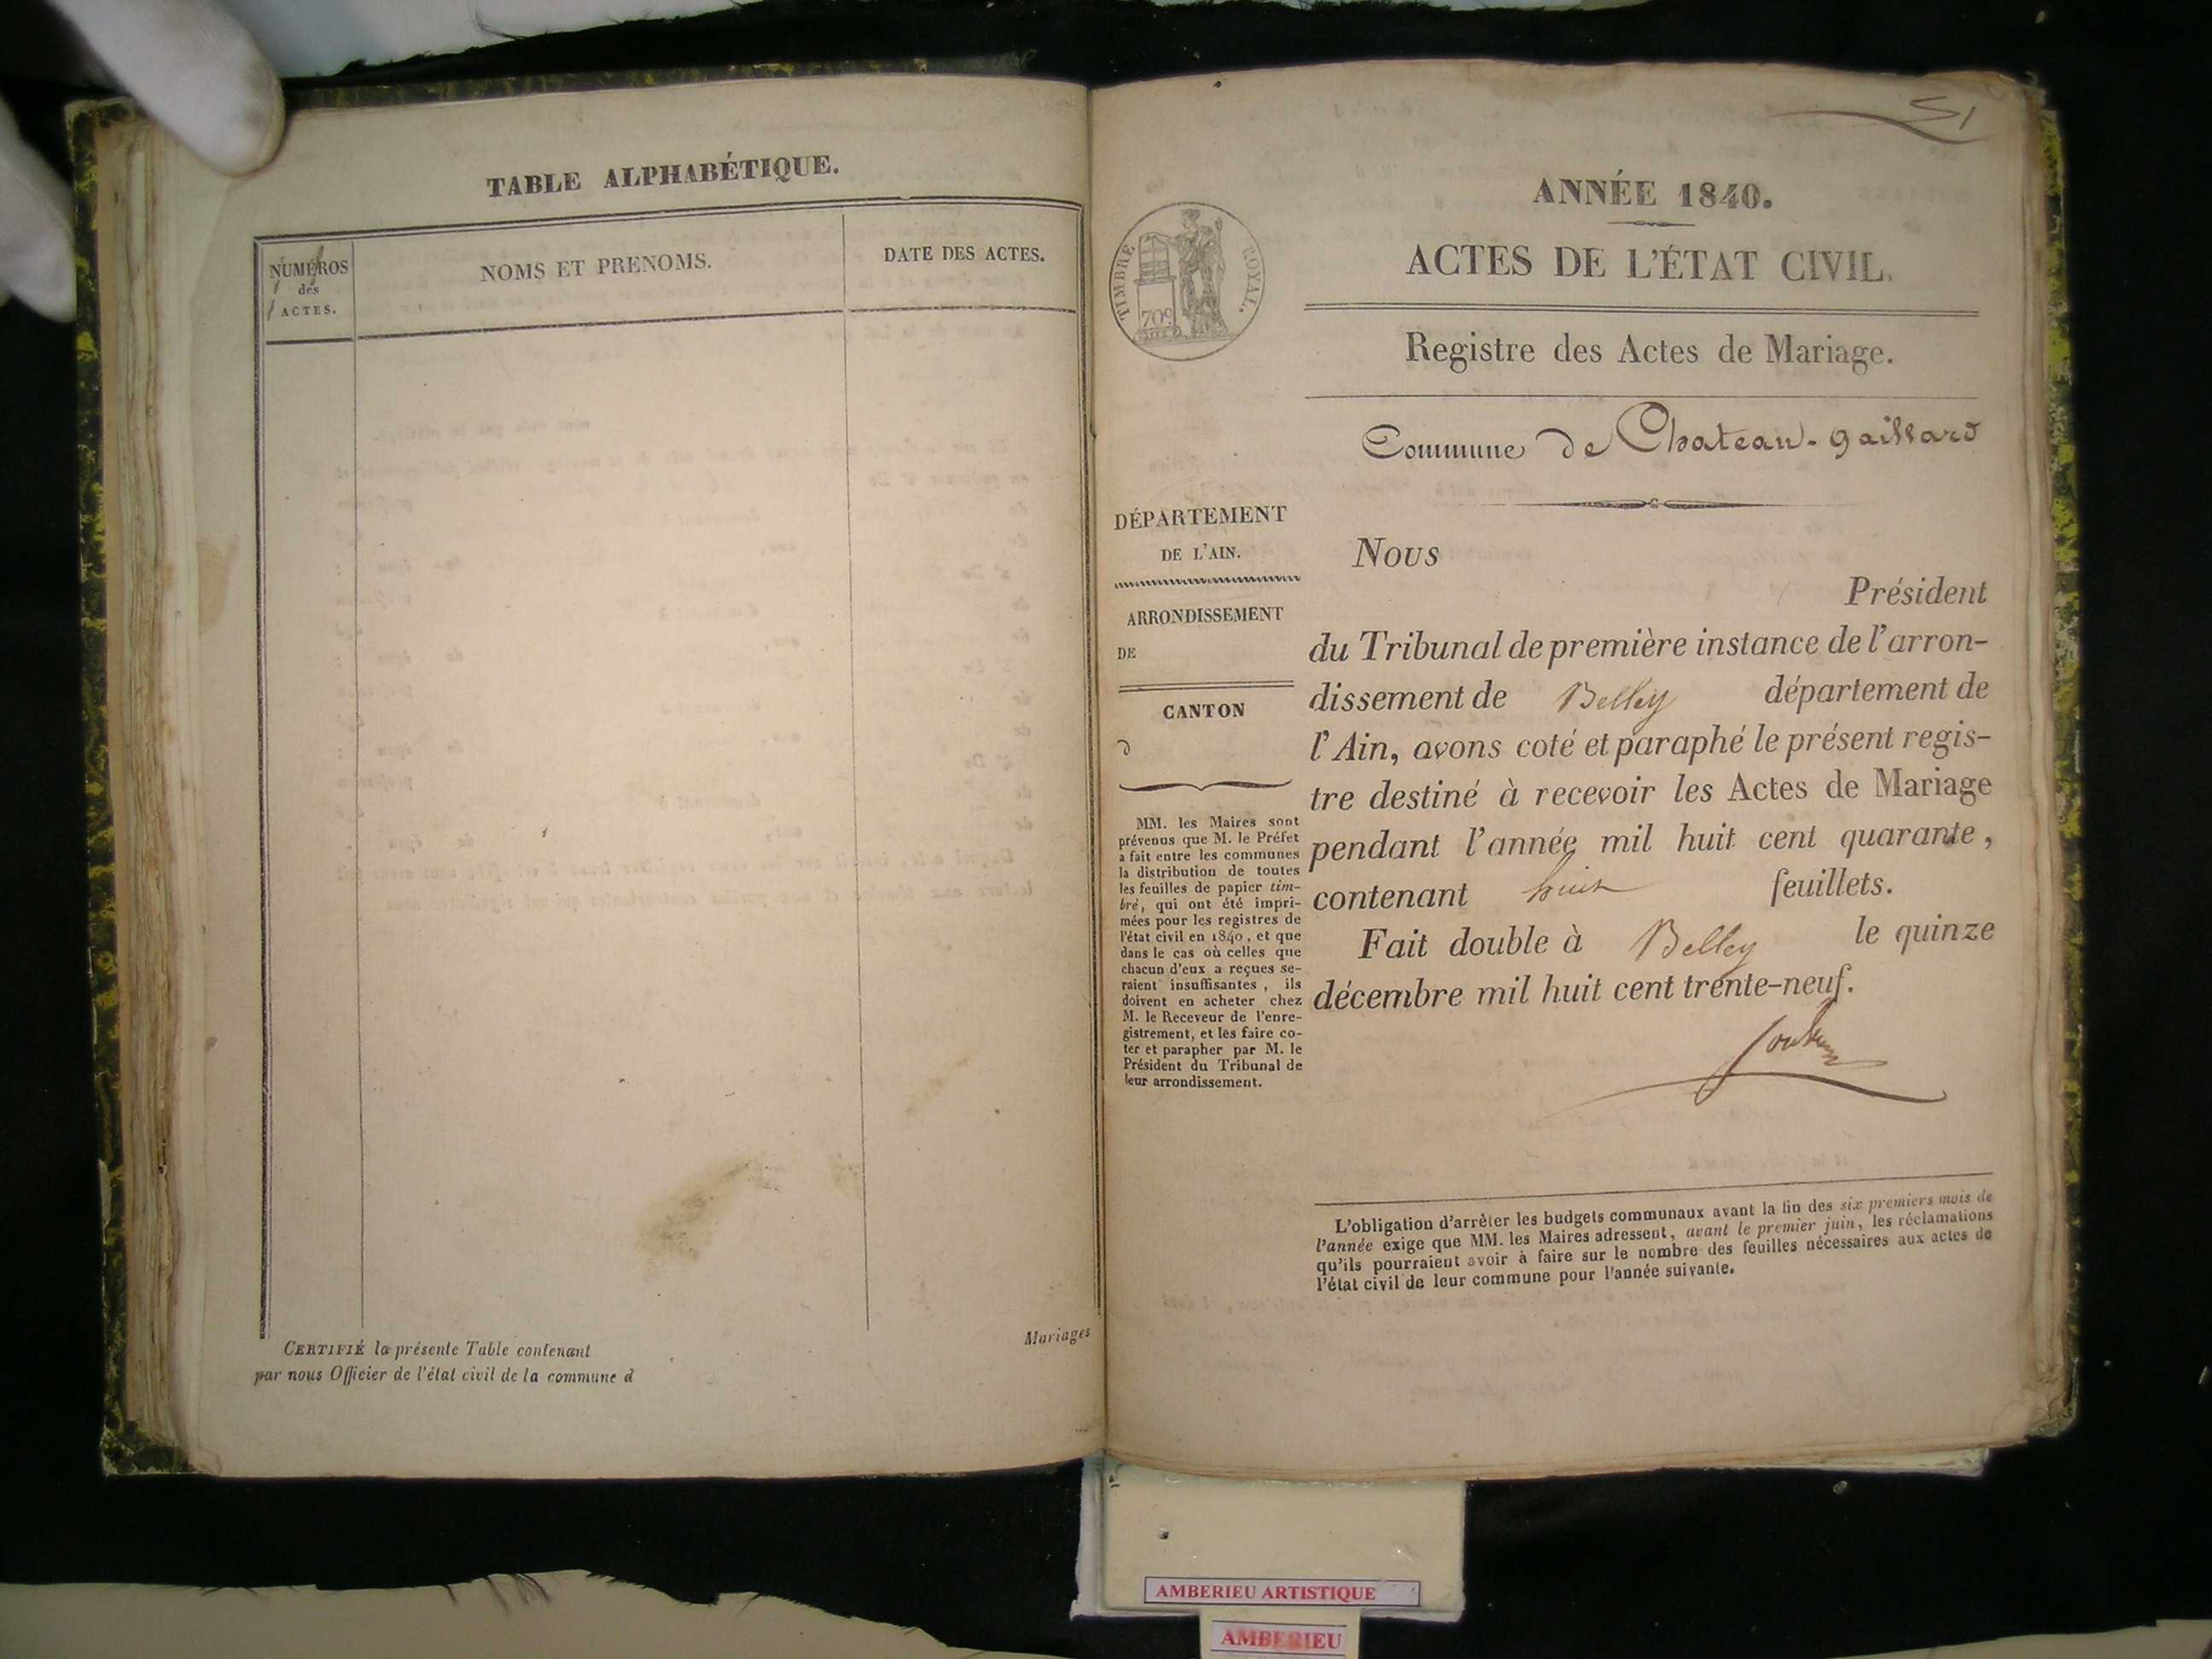 TABLE ALPHABÉTIQUE.
NUMÉROS
des
ACTES.
NOMS ET PRENOMS.
DATE DES ACTES.
CERTIFIÉ la présente Table contenant
par nous Officier de l'état civil de la commune d
Mariages
51
ANNÉE 1840.
ACTES DE L'ÉTAT CIVIL.
TIMBRE ROYAL.
70c
Registre des Actes de Mariage.
Commune de Chateau-gaillard
DÉPARTEMENT
DE L'AIN.
ARRONDISSEMENT
DE
CANTON
d
MM. les Maires sont
prévenus que M. le Préfet
a fait entre les communes
la distribution de toutes
les feuilles de papier tim-
bré, qui ont été impri-
mées pour les registres de
l'état civil en 1840, et que
dans le cas où celles que
chacun d'eux a reçues se-
raient insuffisantes, ils
doivent en acheter chez
M. le Receveur de l'enre-
gistrement, et les faire co-
ter et parapher par M. le
Président du Tribunal de
leur arrondissement.
Nous
Président
du Tribunal de première instance de l'arron-
dissement de Belley département de
l'Ain, avons coté et paraphé le présent regis-
tre destiné à recevoir les Actes de Mariage
pendant l'année mil huit cent quarante,
contenant huit feuillets.
Fait double à Belley le quinze
décembre mil huit cent trente-neuf.
L'obligation d'arrêter les budgets communaux avant la fin des six premiers mois de
l'année exige que MM. les Maires adressent, avant le premier juin, les réclamations
qu'ils pourraient avoir à faire sur le nombre des feuilles nécessaires aux actes de
l'état civil de leur commune pour l'année suivante.
AMBERIEU ARTISTIQUE
AMBERIEU